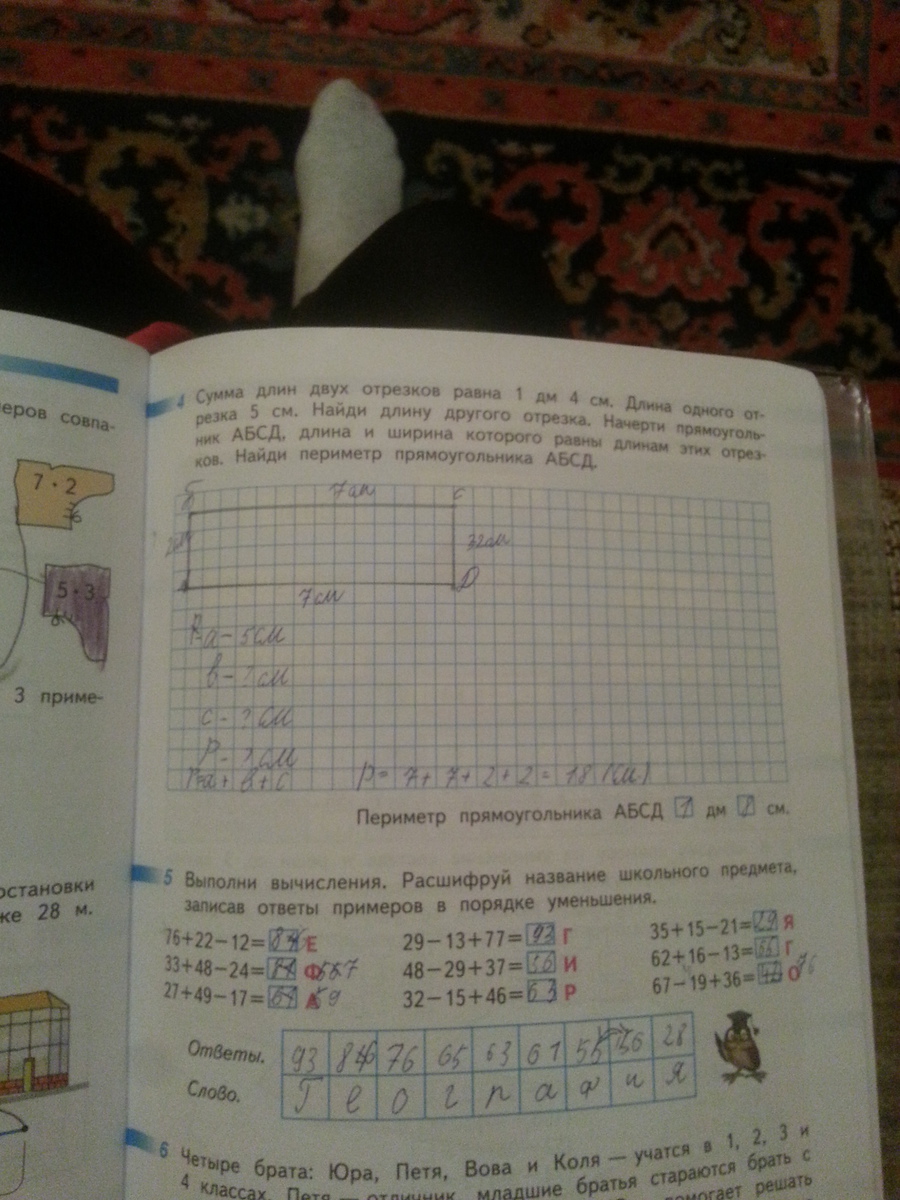 меров совпа-
7 · 2
5 · 3
3 приме-
остановки
же 28 м.
4 Сумма длин двух отрезков равна 1 дм 4 см. Длина одного от-
резка 5 см. Найди длину другого отрезка. Начерти прямоуголь-
ник АБСД, длина и ширина которого равны длинам этих отрез-
ков. Найди периметр прямоугольника АБСД.
Б 7 см С
32см
Д
7 см
а - 5 см
в - ? см
с - ? см
Р - ? см
Р=а + в + с Р = 7 + 7 + 2 + 2 = 18 (см)
Периметр прямоугольника АБСД 1 дм см.
5 Выполни вычисления. Расшифруй название школьного предмета,
записав ответы примеров в порядке уменьшения.
76+22−12= Е 29−13+77=93 Г 35+15−21=29 Я
33+48−24= Ф 48−29+37=56 И 62+16−13=65 Г
27+49−17= А 9 32−15+46=63 Р 67−19+36= О
Ответы. 93 76 65 63 61 56 28
Слово. Г е о г р а ф и я
6 Четыре брата: Юра, Петя, Вова и Коля — учатся в 1, 2, 3 и
4 классах. Петя — отличник, младшие братья стараются брать с
помогает решать